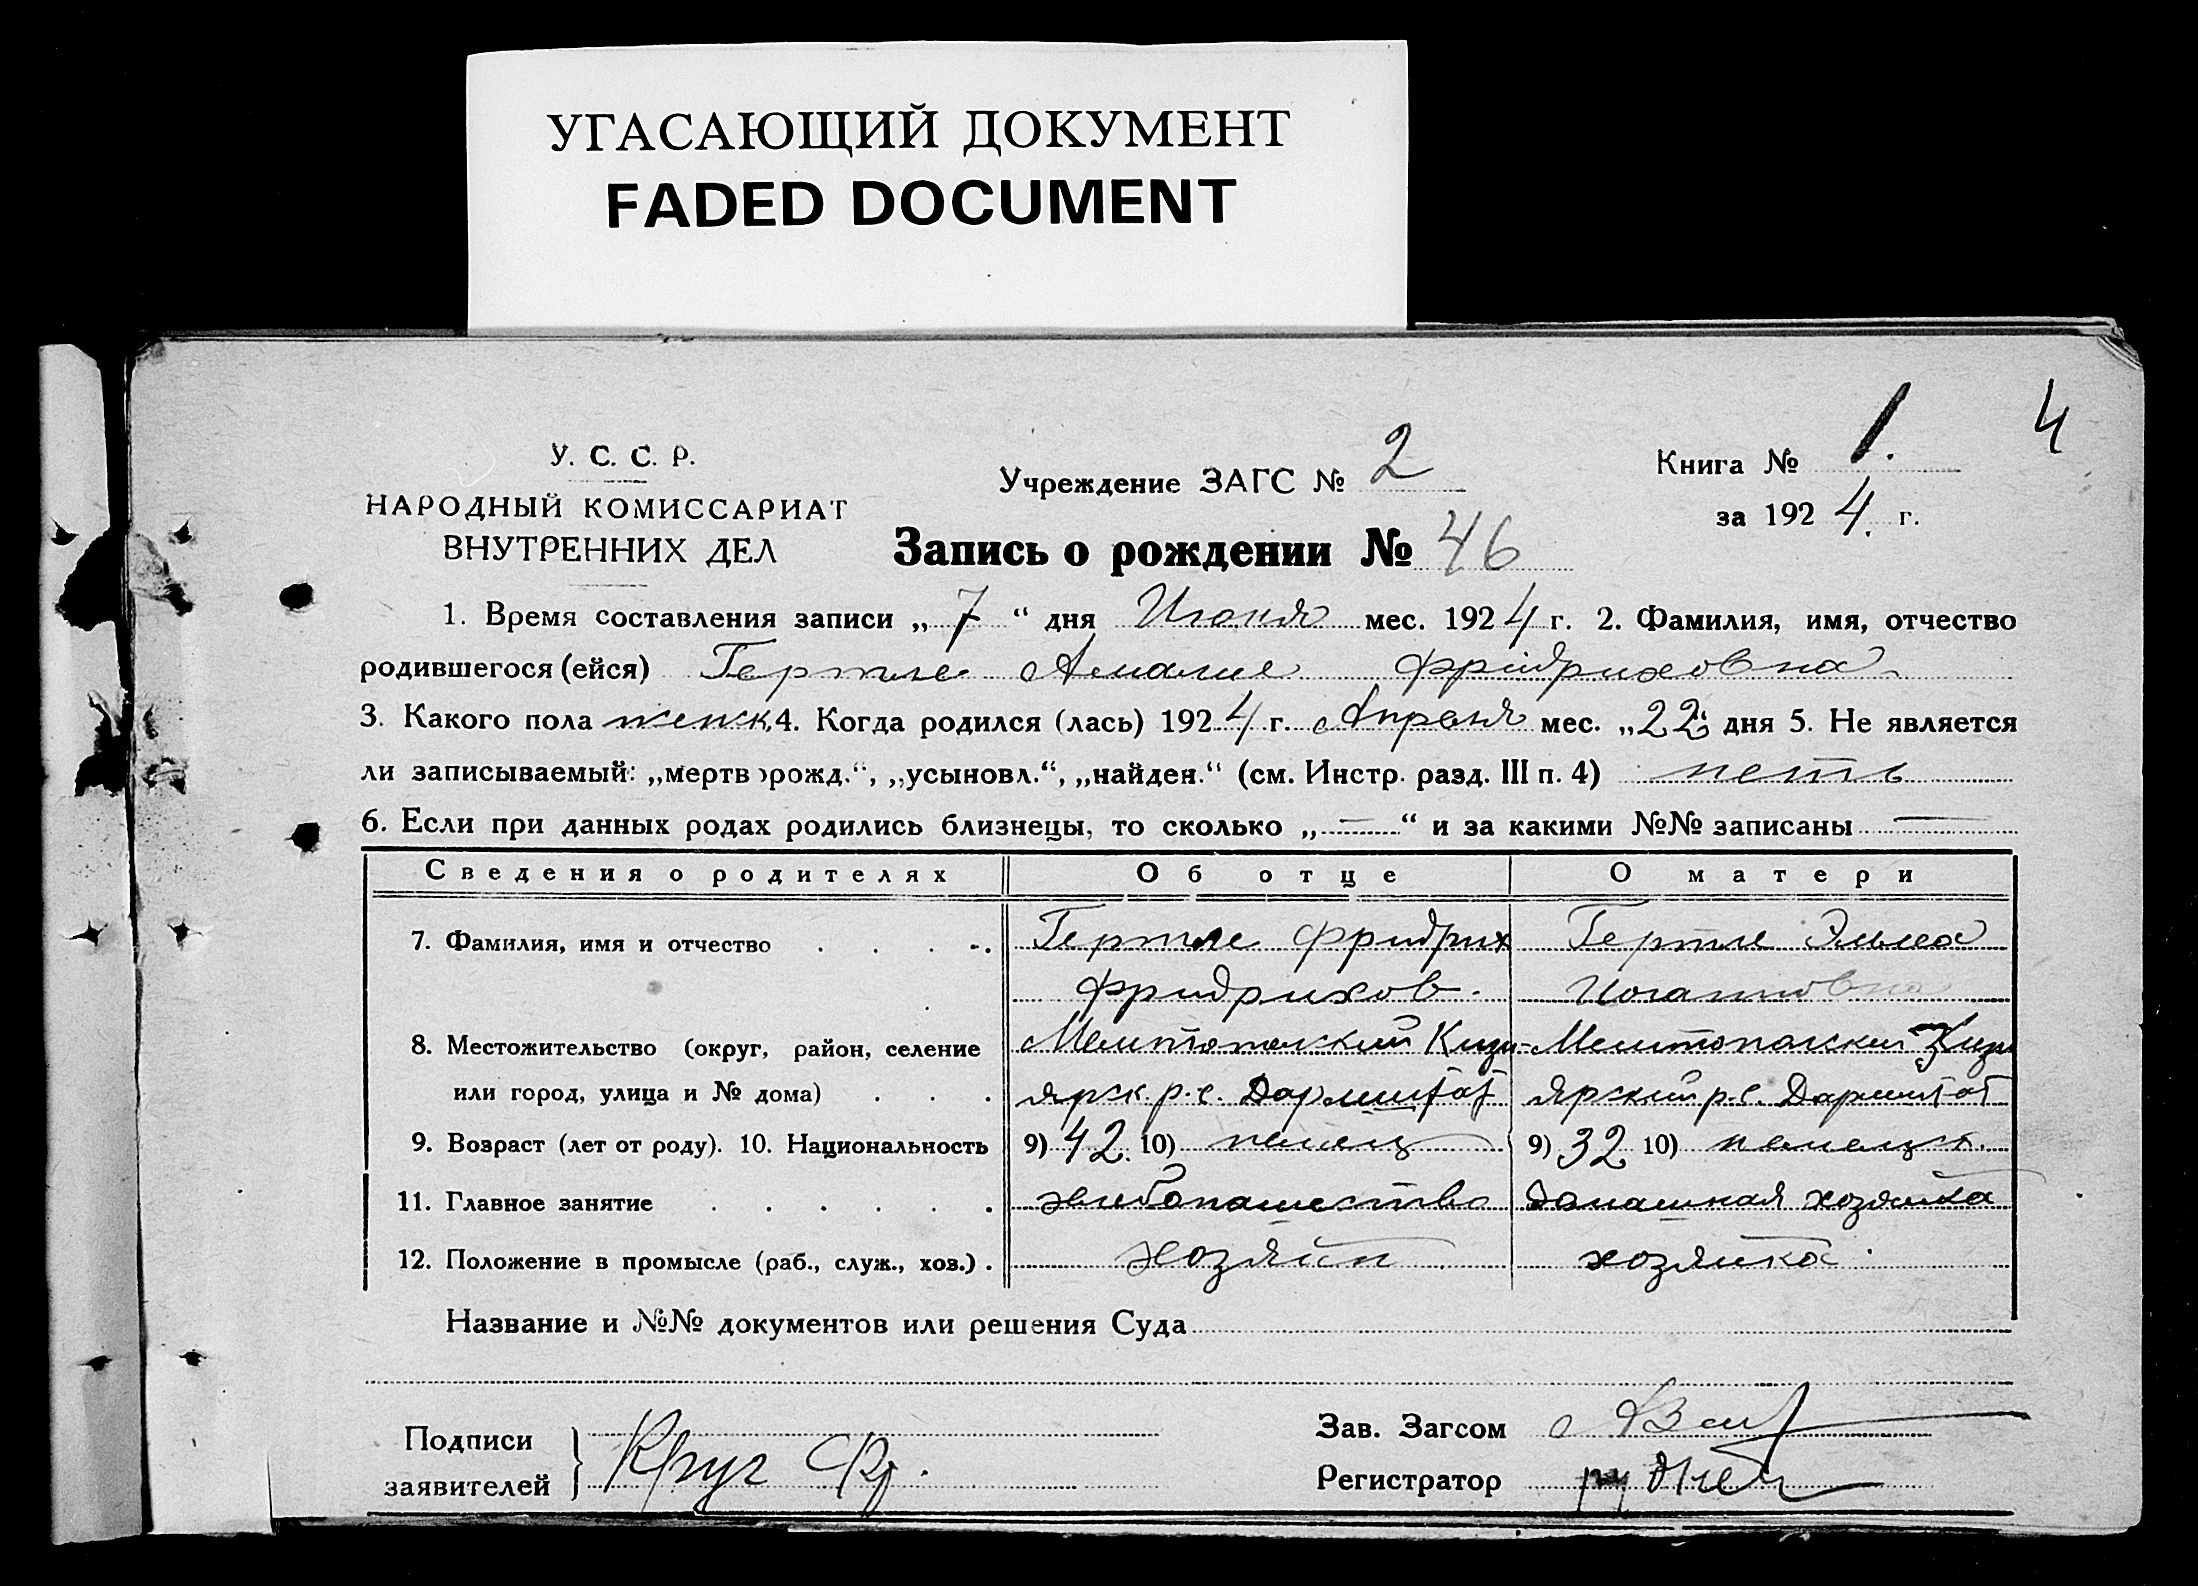 УГАСАЮЩИЙ ДОКУМЕНТ
FADED DOCUMENT
4
У. С. С. Р.
НАРОДНЫЙ КОМИССАРИАТ
ВНУТРЕННИХ ДЕЛ
Учреждение ЗАГС № 2
Книга № 1.
за 1924. г.
Запись о рождении № 46
1. Время составления записи „ 7 “ дня Июня мес. 1924 г. 2. Фамилия, имя, отчество
родившегося (ейся) Гертле Амалие Фридриховна
3. Какого пола женск. 4. Когда родился (лась) 1924 г. Апреля мес. „22“ дня 5. Не является
ли записываемый: „мертворожд.“, „усыновл.“, „найден.“ (см. Инстр. разд. III п. 4) неть
6. Если при данных родах родились близнецы, то сколько „ — “ и за какими №№ записаны —
Сведения о родителях Об отце О матери
7. Фамилия, имя и отчество . . . . Гертле Фридрих Гертле
Фридрихов. Иогановна
8. Местожительство (округ, район, селение Мелитопольский Кизи- Мелитопольский Кизи
или город, улица и № дома) . . . ярск. р. с. Дармштат ярский р. с. Дармштат
9. Возраст (лет от роду). 10. Национальность 9) 42. 10) немец 9) 32 10) немецк.
11. Главное занятие . . . . . . хлебопашество домашная хозяйка
12. Положение в промысле (раб., служ., хоз.) . хозяйн хозяйка
Название и №№ документов или решения Суда
Подписи
заявителей } Круг Фр.
Зав. Загсом
Регистратор